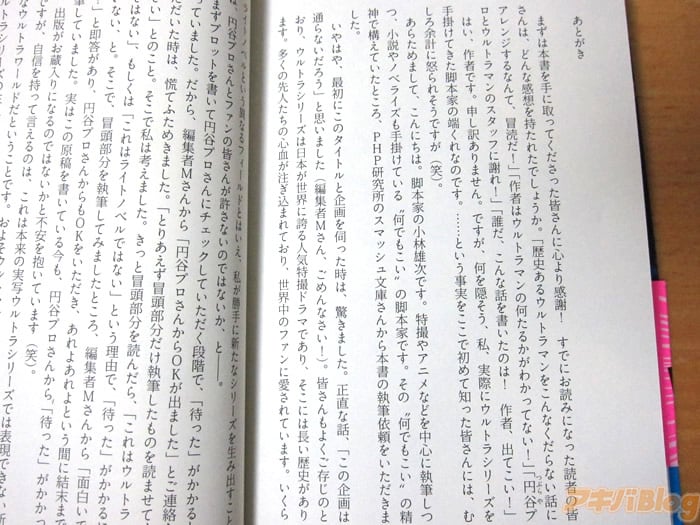 あとがき
まずは本書を手に取ってくださった皆さんに心より感謝！　すでにお読みになった読者の皆
さんは、どんな感想を持たれたでしょうか。「歴史あるウルトラマンをこんなくだらない話に
アレンジするなんて、冒涜だ！」「作者はウルトラマンの何たるかがわかってない！」「円谷プ
つぶらや
ロとウルトラマンのスタッフに謝れ！」「誰だ、こんな話を書いたのは！　作者、出てこい！」
はい、作者です。申し訳ありません。ですが、何を隠そう、私、実際にウルトラシリーズを
手掛けてきた脚本家の端くれなのです。……という事実をここで初めて知った皆さんには、む
しろ余計に怒られそうですが（笑）。
あらためまして、こんにちは。脚本家の小林雄次です。特撮やアニメなどを中心に執筆しつ
つ、小説やノベライズも手掛けている〝何でもこい〟の脚本家です。その〝何でもこい〟の精
神で構えていたところ、ＰＨＰ研究所のスマッシュ文庫さんから本書の執筆依頼をいただきま
した。
いやはや、最初にこのタイトルと企画を伺った時は、驚きました。正直な話、「この企画は
通らないだろう」と思いました（編集者Ｍさん、ごめんなさい！）。皆さんもよくご存じのと
おり、ウルトラシリーズは日本が世界に誇る人気特撮ドラマであり、そこには長い歴史があり
ます。多くの先人たちの心血が注ぎ込まれており、世界中のファンに愛されています。いくら
ライトノベルという異なるフィールドとはいえ、私が勝手に新たなシリーズを生み出すこと
、円谷プロさんとファンの皆さんが許さないのではないか、と――。
まずプロットを書いて円谷プロさんにチェックしていただく段階で、「待った」がかかる
っていました。だから、編集者Ｍさんから「円谷プロさんからＯＫが出ました」とご連絡
ただいた時は、慌てふためきました。「とりあえず冒頭部分だけ執筆したものを読ませて
さい」とのこと。そこで私は考えました。きっと冒頭部分を読んだら、「これはウルトラ
ではない」、もしくは「これはライトノベルではない」という理由で、「待った」がかかる
ない、と。そこで、冒頭部分を執筆してみましたところ、編集者Ｍさんから「面白いで
」と即答があり、円谷プロさんからもＯＫをいただき、あれよあれよという間に結末まで
筆していました。実はこの原稿を書いている今も、円谷プロさんから「待った」がかか
、出版がお蔵入りになるのではないかと不安を抱いています（笑）。
ですが、自信を持って言えるのは、これは本来の実写ウルトラシリーズでは表現できない新
なウルトラワールドだということです。およそウル
アキバBlog